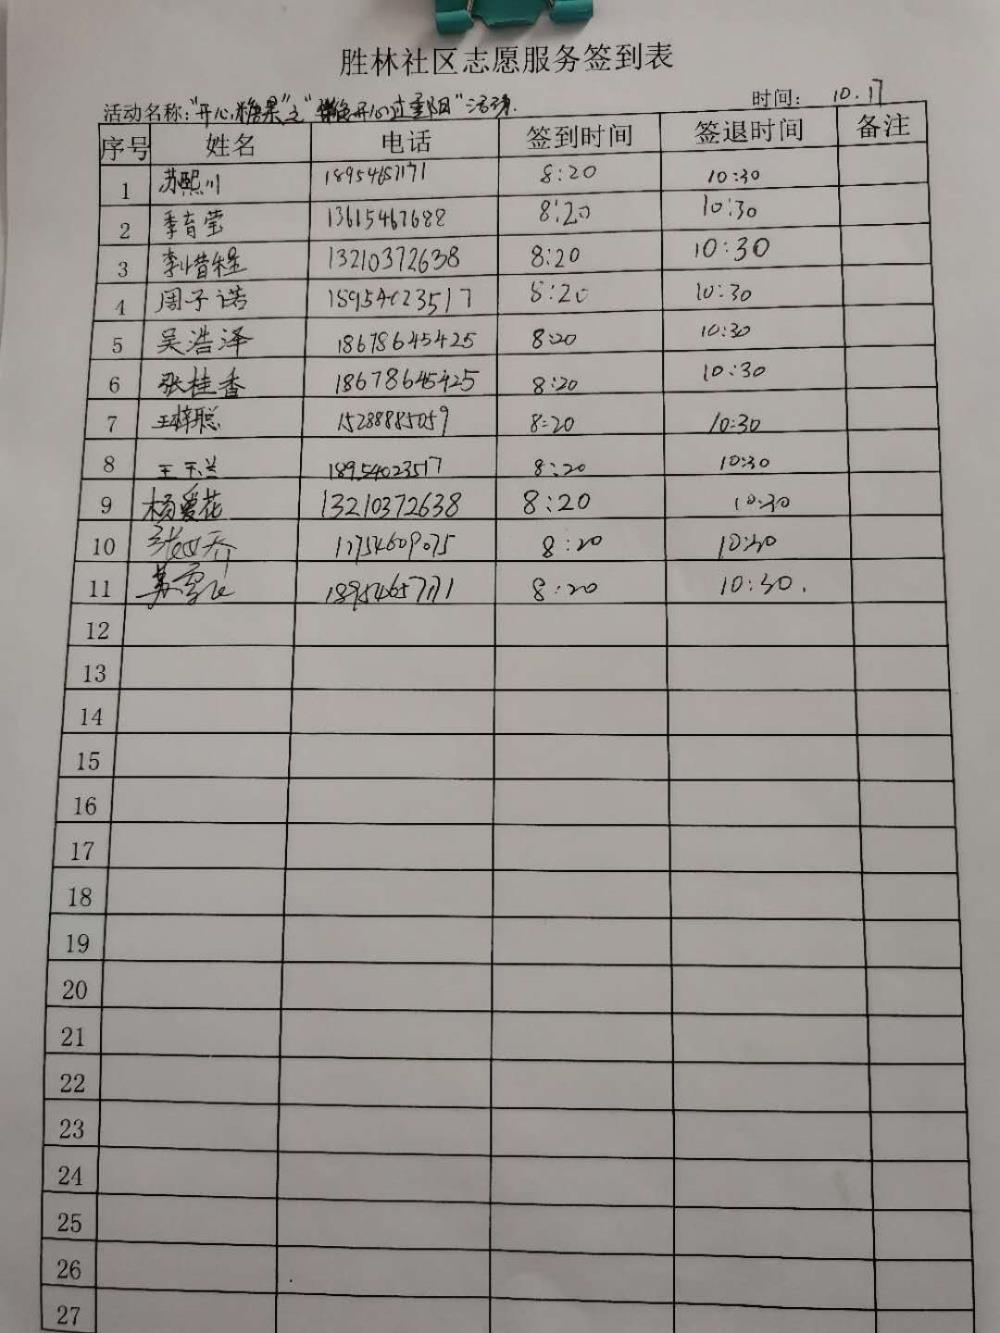 胜林社区志愿服务签到表
活动名称:"开心糖果"之"开心过重阳"活动. 时间: 10.17
序号 姓名 电话 签到时间 签退时间 备注
1 苏熙川 18954657171 8:20 10:30
2 季育莹 13615467688 8:20 10:30
3 李惜程 13210372638 8:20 10:30
4 周子诺 18954023517 8:20 10:30
5 吴浩泽 18678645425 8:20 10:30
6 张桂香 18678645425 8:20 10:30
7 王梓聪 15288885059 8:20 10:30
8 王玉兰 18954023517 8:20 10:30
9 杨爱花 13210372638 8:20 10:30
10 17754609075 8:20 10:30
11 18954657171 8:20 10:30.
12
13
14
15
16
17
18
19
20
21
22
23
24
25
26
27